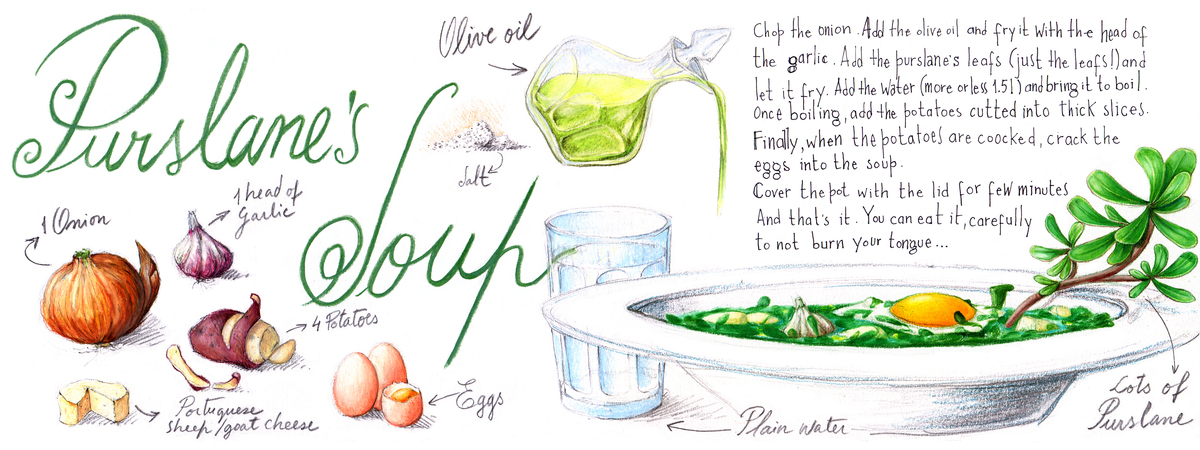 Purslane's
Soup
Olive oil
Salt
1 Onion
1 head of
Garlic
4 Potatoes
Portuguese
sheep/goat cheese
Eggs
Plain water
Lots of
Purslane
Chop the onion. Add the olive oil and fry it with the head of
the garlic. Add the purslane's leafs (just the leafs!) and
let it fry. Add the water (more or less 1.5l) and bring it to boil.
Once boiling, add the potatoes cutted into thick slices.
Finally, when the potatoes are coocked, crack the
eggs into the soup.
Cover the pot with the lid for few minutes
And that's it. You can eat it, carefully
to not burn your tongue...